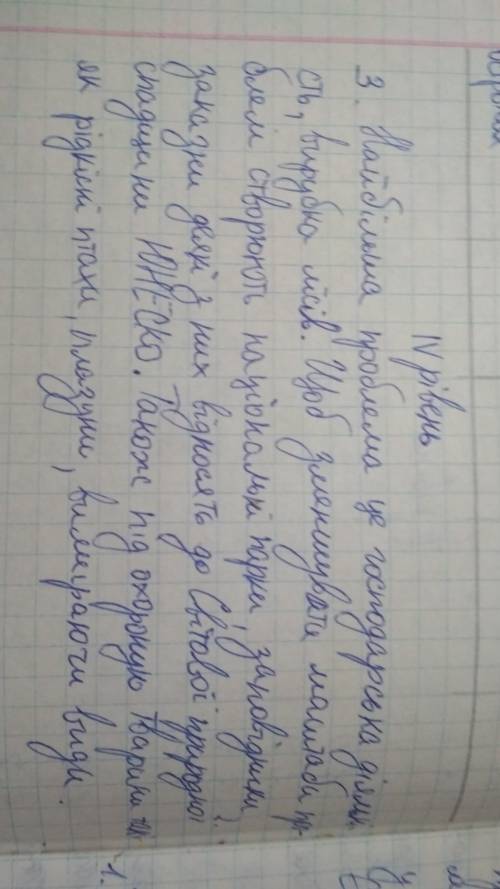 IV рівень
3. Найбільша проблема це господарська діяльні
сть, вирубка лісів. Щоб зменшувати масштаби пр-
блем створюють національні парки, заповідники,
заказни деякі з них відносять до Світової природної
спадщини ЮНЕСКО. Також під охороную тварини
як рідкісні птахи, плазуни, вимираючи види.
1.